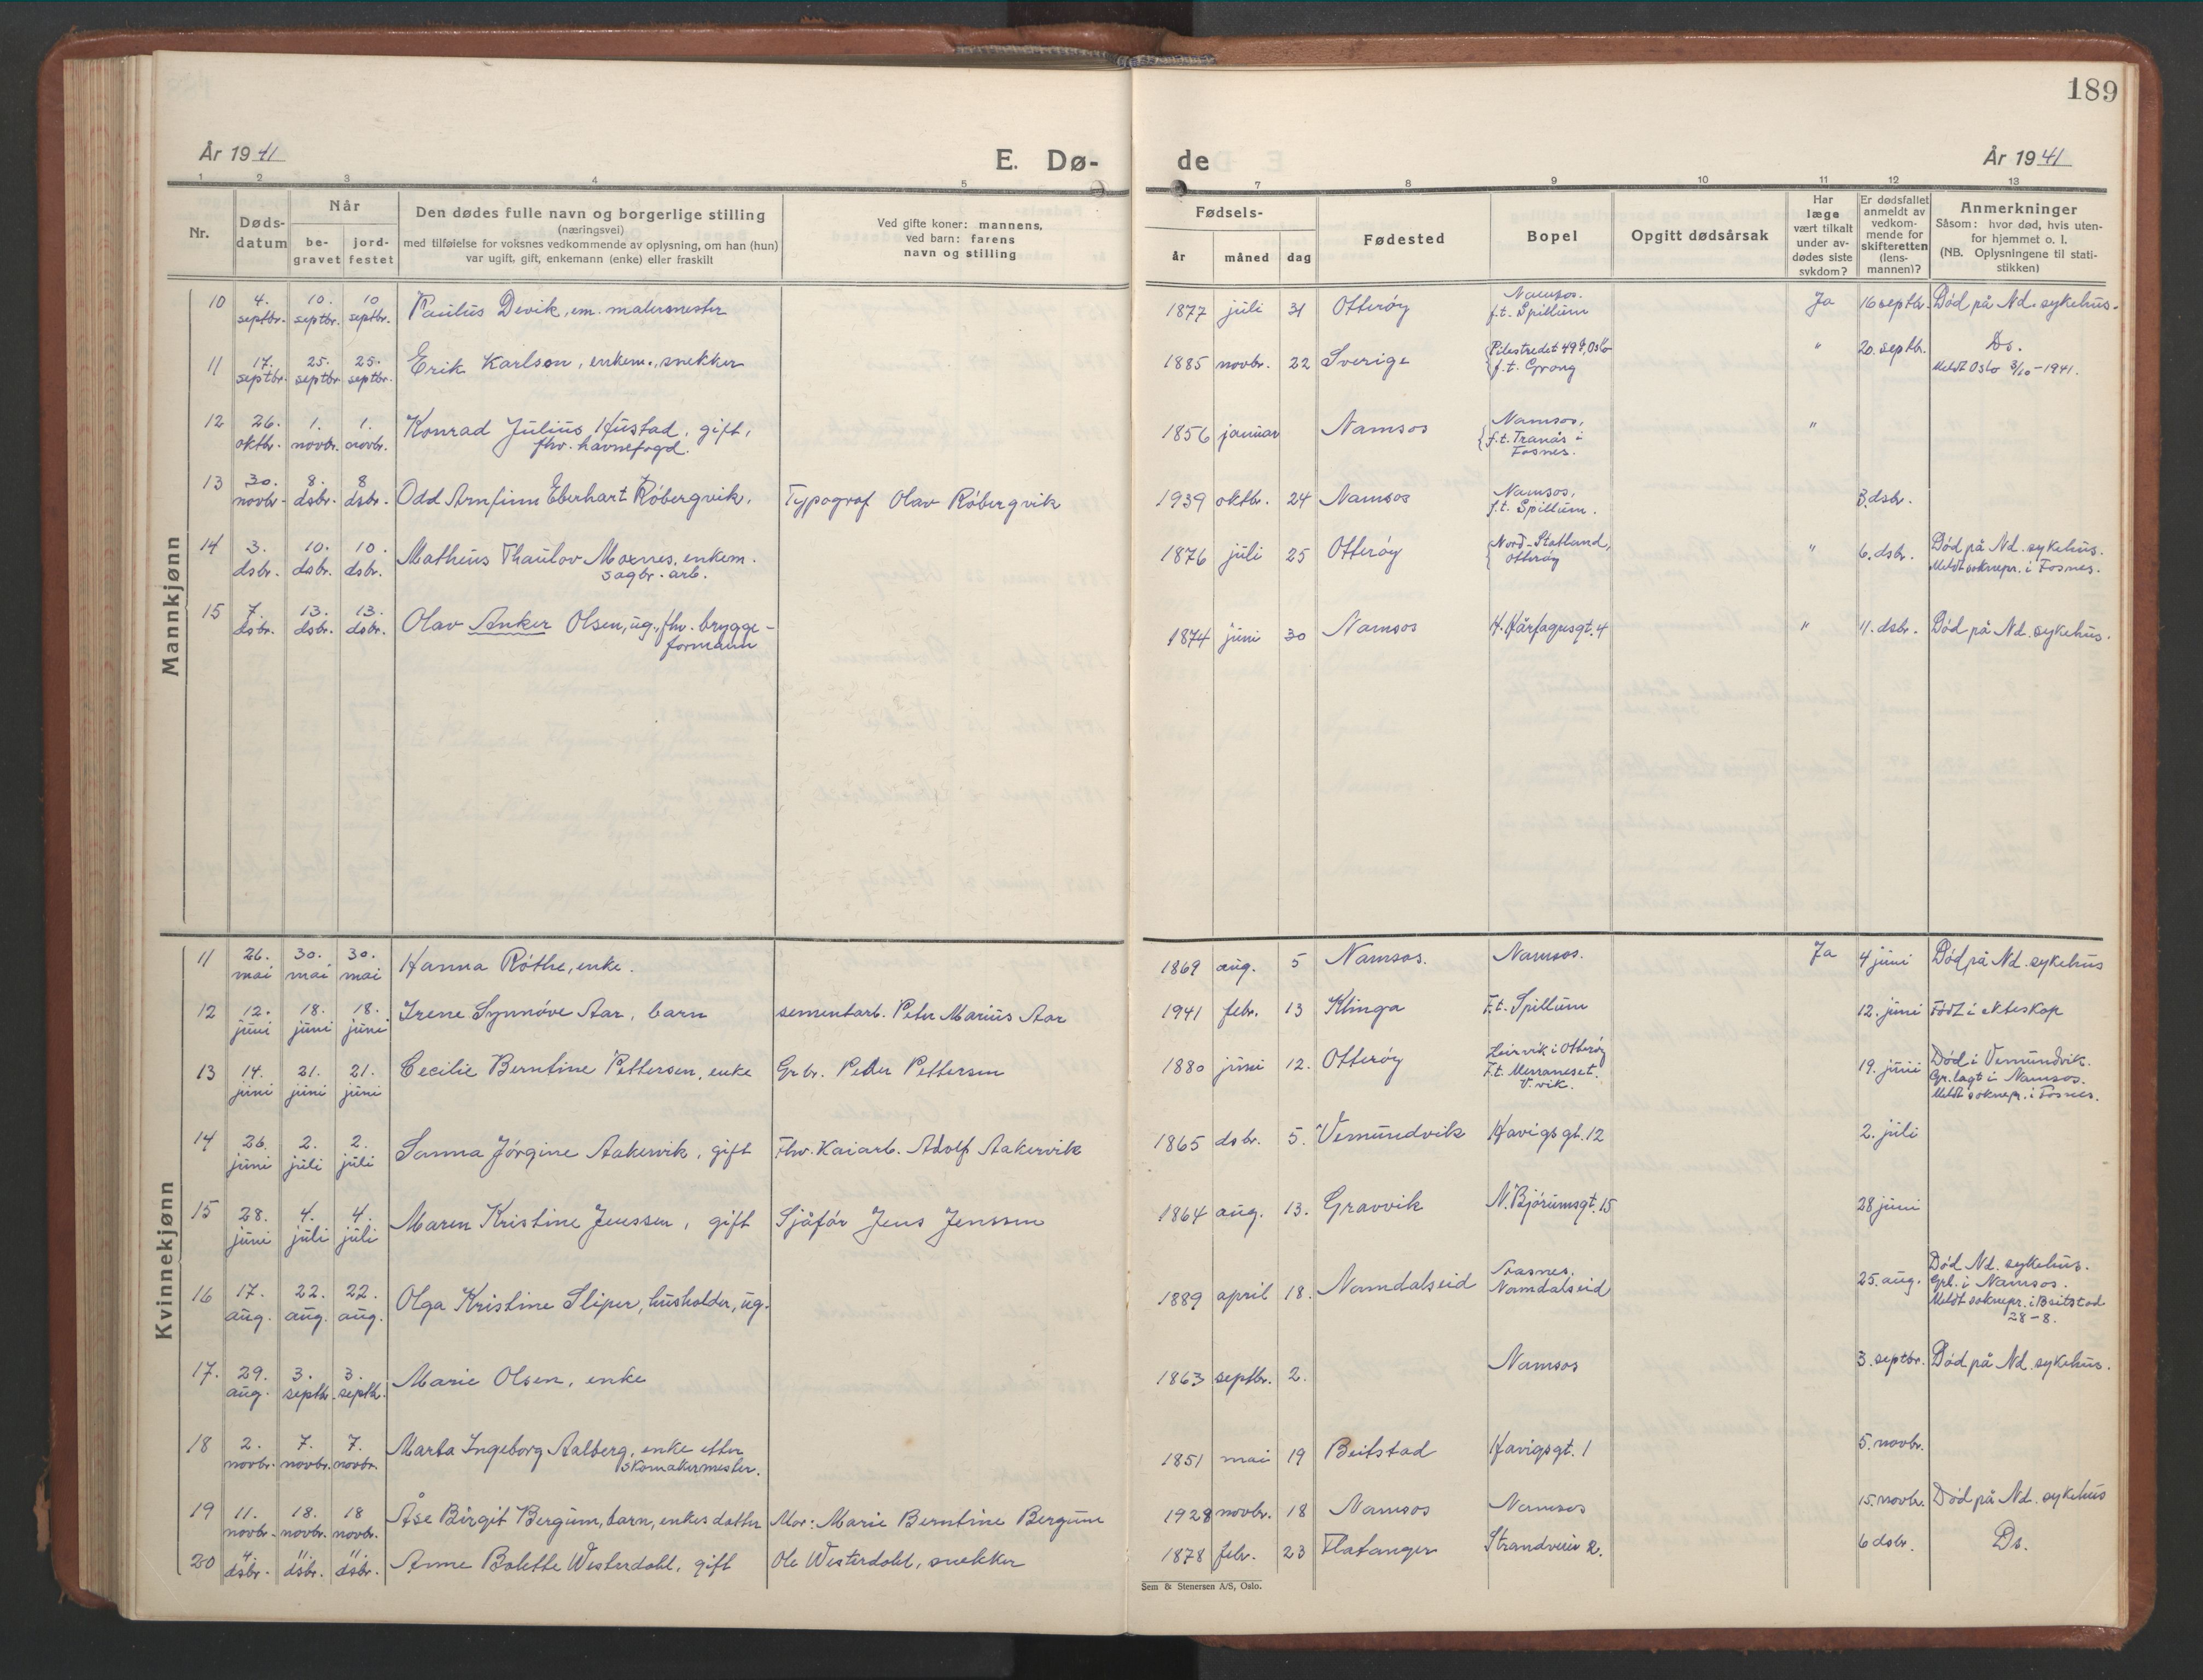 189
År 1941 E. Dø- de År 1941
1 2 3 4 5 7 8 9 10 11 12 13
Nr.
Døds-datum
Når
be-gravet
jord-festet
Den dødes fulle navn og borgerlige stilling
(næringsvei)
med tilføielse for voksnes vedkommende av oplysning, om han (hun)
var ugift, gift, enkemann (enke) eller fraskilt
Ved gifte koner: mannens,
ved barn: farens
navn og stilling
Fødsels-
år måned dag
Fødested
Bopel
Opgitt dødsårsak
Har læge vært tilkalt under avdødes siste sykdom?
Er dødsfallet anmeldt av vedkommende for skifteretten (lensmannen)?
Anmerkninger
Såsom: hvor død, hvis utenfor hjemmet o. l.
(NB. Oplysningene til statistikken)
Mannkjønn
10 4. septbr. 10. septbr. 10 septbr. Paulus Devik, em. malermester 1877 juli 31 Otterøy Namsos. f.t. Spillum Ja 16 septbr. Død på Nd. sykehus.
11 17. septbr. 25. septbr. 25. septbr. Erik Karlson, enkem., snekker 1885 novbr. 22 Sverige Pilestredet 49 f, Oslo f.t. Grong " 20. septbr. Ds.
Meldt Oslo 3/10-1941.
12 26. oktbr. 1. novbr. 1. novbr. Konrad Julius Hustad, gift, 1856 januar Namsos Namsos, f.t. Tranås i Fosnes. "
fhv. havnefogd.
13 30. novbr. 8. dsbr. 8 dsbr. Odd Arnfinn Eberhart Röbergvik, Typograf Olav Röbergvik 1939 oktbr. 24 Namsos Namsos, f.t. Spillum. 3. dsbr.
14 3. dsbr. 10. dsbr. 10. dsbr. Matheus Thaulov Moxnes, enkem. 1876 juli 25 Otterøy Nord-Statland, Otterøy " 6. dsbr. Død på Nd. sykehus.
sagbr. arb. Meldt soknepr. i Fosnes.
15 7. dsbr. 13. dsbr. 13. dsbr. Olav Anker Olsen, ug., fhv. brygge- 1874 juni 30 Namsos H. Hårfagresgt. 4 " 11. dsbr. Død på Nd. sykehus.
formann
Kvinnekjønn
11 26. mai 30. mai 30. mai Hanna Röthe, enke. 1869 aug. 5 Namsos. Namsos. Ja 4 juni Død på Nd. sykehus
12 12. juni 18. juni 18. juni Irene Synnöve Aar, barn sementarb. Peter Marius Aar 1941 febr. 13 Klinga F.t. Spillum 12. juni Född i ekteskap
13 14. juni 21. juni 21. juni Cecilie Berntine Pettersen, enke Gr.br. Peder Pettersen 1880 juni 12. Otterøy i Otterøy F.t. V.vik. 19. juni Død i Vemundvik.
Gr.lagt i Namsos.
Meldt soknepr. i Fosnes.
14 26. juni 2. juli 2. juli Sanna Jörgine Aakervik, gift Fhv. Kaiarb. Adolf Aakervik 1865 dsbr. 5. Vemundvik Havigsgt. 12 2. juli
15 28. juni 4. juli 4. juli Maren Kristine Jenssen, gift Sjåför Jens Jenssen 1864 aug. 13. Gravvik N. Bjørumsgt. 15 28 juni
16 17. aug. 22. aug. 22. aug. Olga Kristine Sliper, husholder, ug. 1889 april 18. Namdalseid Namdalseid 25. aug. Død Nd. sykehus.
Grl. i Namsos.
Meldt soknepr. i Beitstad
28-8.
17. 29. aug. 3. septbr. 3. septbr. Marie Olsen, enke 1863 septbr. 2. Namsos 3. septbr. Død på Nd. sykehus.
18 2. novbr. 7. novbr. 7. novbr. Marta Ingeborg Aalberg, enke etter 1851 mai 19 Beitstad Havigsgt. 1 5. novbr.
skomakermester.
19 11. novbr. 18. novbr. 18 novbr. Åse Birgit Bergum, barn, enkes datter Mor: Marie Berntine Bergum 1928 novbr. 18 Namsos Namsos 15. novbr. Død på Nd. sykehus
20 4. dsbr. 11. dsbr. 11. dsbr. Anne Bolette Westerdahl, gift Ole Westerdahl, snekker 1878 febr. 23 Flatanger Strandveien 2. 6 dsbr. Ds.
Sem & Stenersen A/S, Oslo.